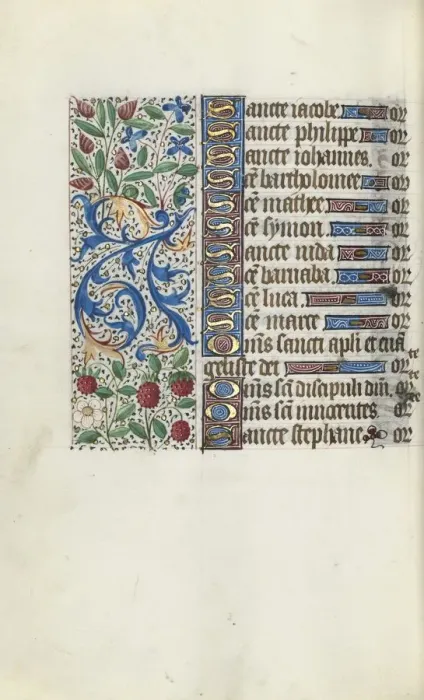 Sancte iacobe or
Sancte philippe or
Sancte iohannes. or
Sce bartholomee or
Sce mathee or
Sce symon or
Sancte iuda or
Sce barnaba or
Sce luca or
Sce marce or
Omis sancti apli et euā
geliste dei orte
Omis scī discipuli dnī. orte
Omis scī innocentes orte
Sancte stephane or